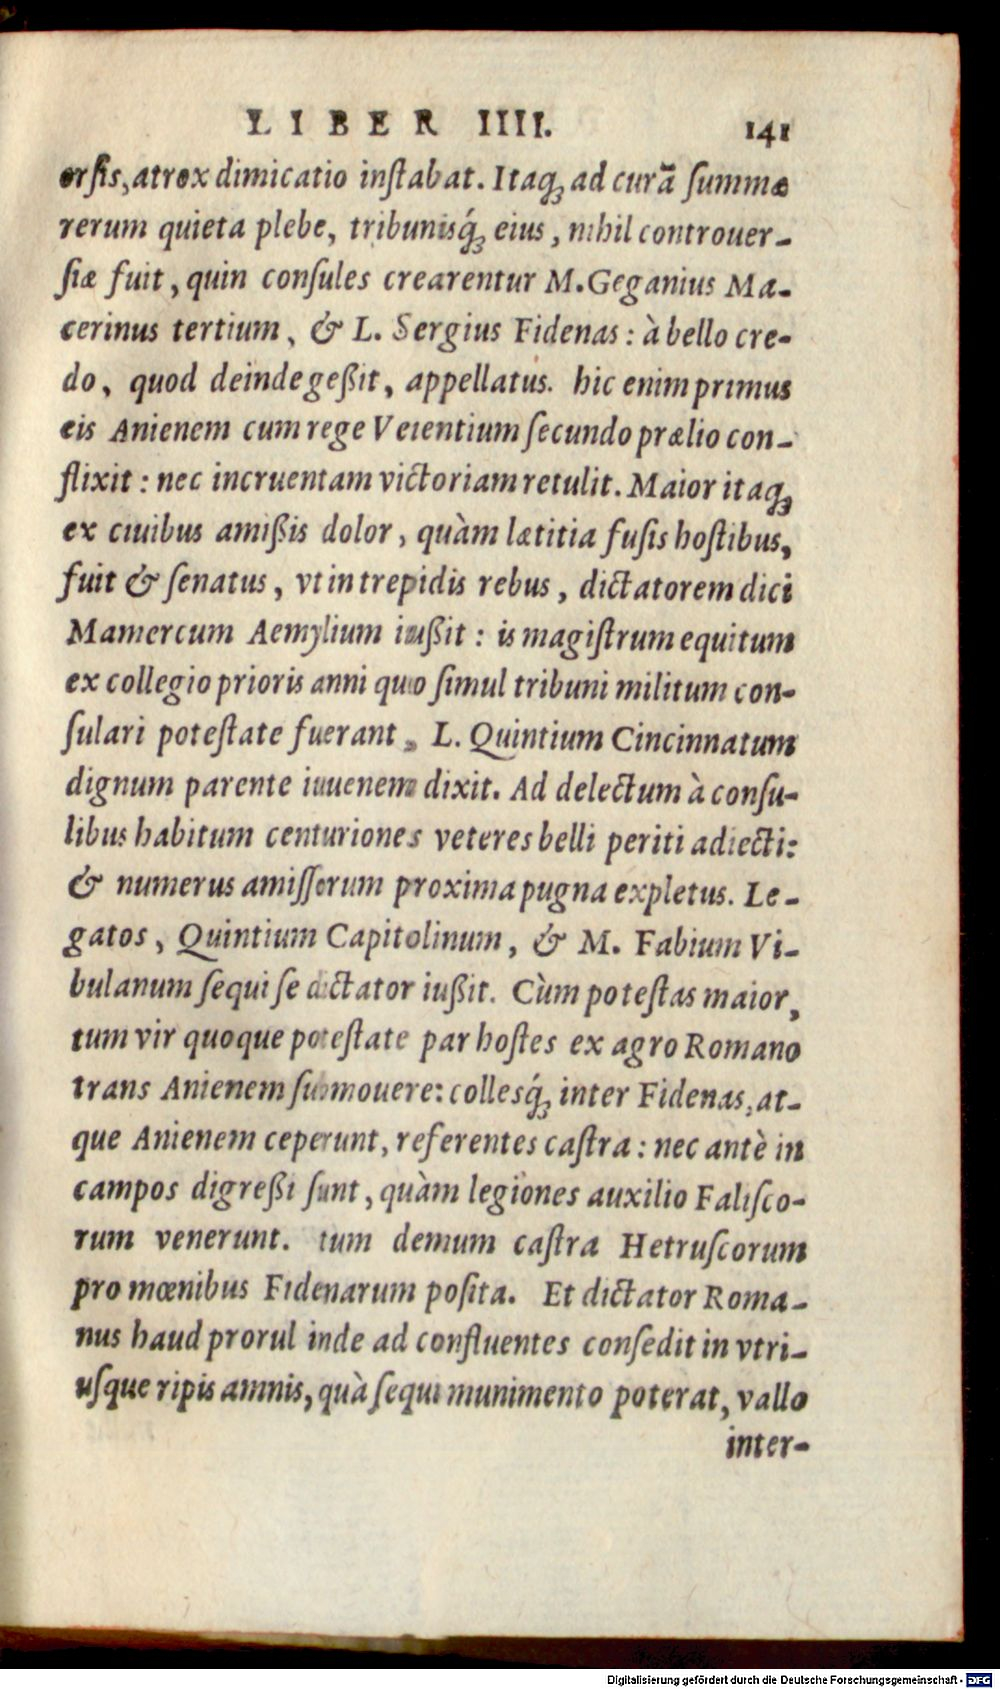 LIBER IIII. 141
orsis, atrox dimicatio instabat. Itaq; ad curā summæ
rerum quieta plebe, tribunisq́; eius, nihil controuer-
siæ fuit, quin consules crearentur M. Geganius Ma-
cerinus tertium, & L. Sergius Fidenas: à bello cre-
do, quod deinde geßit, appellatus. hic enim primus
cis Anienem cum rege Veientium secundo prælio con-
flixit: nec incruentam victoriam retulit. Maior itaq;
ex ciuibus amißis dolor, quàm lætitia fusis hostibus,
fuit & senatus, vt in trepidis rebus, dictatorem dici
Mamercum Aemylium iußit: is magistrum equitum
ex collegio prioris anni quo simul tribuni militum con-
sulari potestate fuerant, L. Quintium Cincinnatum
dignum parente iuuenem dixit. Ad delectum à consu-
libus habitum centuriones veteres belli periti adiecti:
& numerus amissorum proxima pugna expletus. Le-
gatos, Quintium Capitolinum, & M. Fabium Vi-
bulanum sequi se dictator iußit. Cùm potestas maior,
tum vir quoque potestate par hostes ex agro Romano
trans Anienem submouere: collesq́; inter Fidenas, at-
que Anienem ceperunt, referentes castra: nec antè in
campos digreßi sunt, quàm legiones auxilio Falisco-
rum venerunt. tum demum castra Hetruscorum
pro mœnibus Fidenarum posita. Et dictator Roma-
nus haud prorul inde ad confluentes consedit in vtri-
usque ripis amnis, quà sequi munimento poterat, vallo
inter-
Digitalisierung gefördert durch die Deutsche Forschungsgemeinschaft - DFG